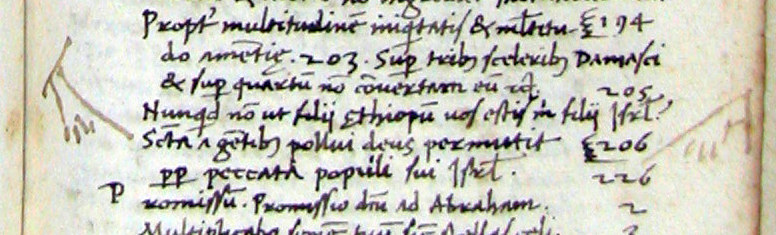 Propt' multitudinē iniqtatis & mltitu- & 194
do amentię. 203. Sup tribꝫ sceleribꝫ Damasci
& sup quartū nō cōuertam eū 205
Nunqd nō ut filij ęthiopū uos estis m filij Jsrl?
Scta a gētibꝫ pollui deus permittit & 206
pp peccata populi sui Jsrl. 226
P romissū. Promissio dni ad Abraham. 2